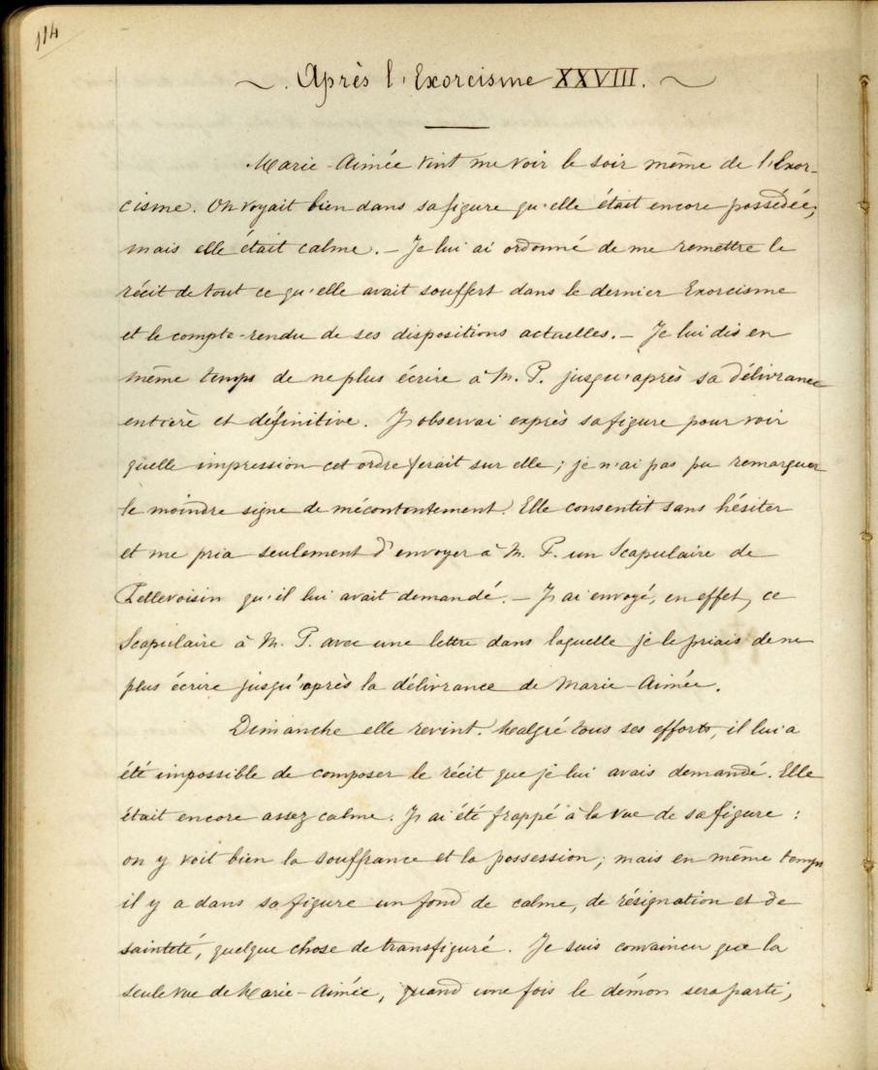 114
~ . Après l'Exorcisme XXVIII. ~
Marie-Aimée vint me voir le soir même de l'Exor-
cisme. On voyait bien dans sa figure qu'elle était encore possédée;
mais elle était calme. – Je lui ai ordonné de me remettre le
récit de tout ce qu'elle avait souffert dans le dernier Exorcisme
et le compte-rendu de ses dispositions actuelles. – Je lui dis en
même temps de ne plus écrire à M. P. jusqu'après sa délivrance
entière et définitive. J'observai exprès sa figure pour voir
quelle impression cet ordre ferait sur elle; je n'ai pas pu remarquer
le moindre signe de mécontentement. Elle consentit sans hésiter
et me pria seulement d'envoyer à M. P. un Scapulaire de
Pellevoisin qu'il lui avait demandé. – J'ai envoyé, en effet, ce
Scapulaire à M. P. avec une lettre dans laquelle je le priais de ne
plus écrire jusqu'après la délivrance de Marie-Aimée.
Dimanche elle revint. Malgré tous ses efforts, il lui a
été impossible de composer le récit que je lui avais demandé. Elle
était encore assez calme. J'ai été frappé à la vue de sa figure :
on y voit bien la souffrance et la possession; mais en même temps
il y a dans sa figure un fond de calme, de résignation et de
sainteté, quelque chose de transfiguré. Je suis convaincu que la
seule vue de Marie-Aimée, quand une fois le démon sera parti,